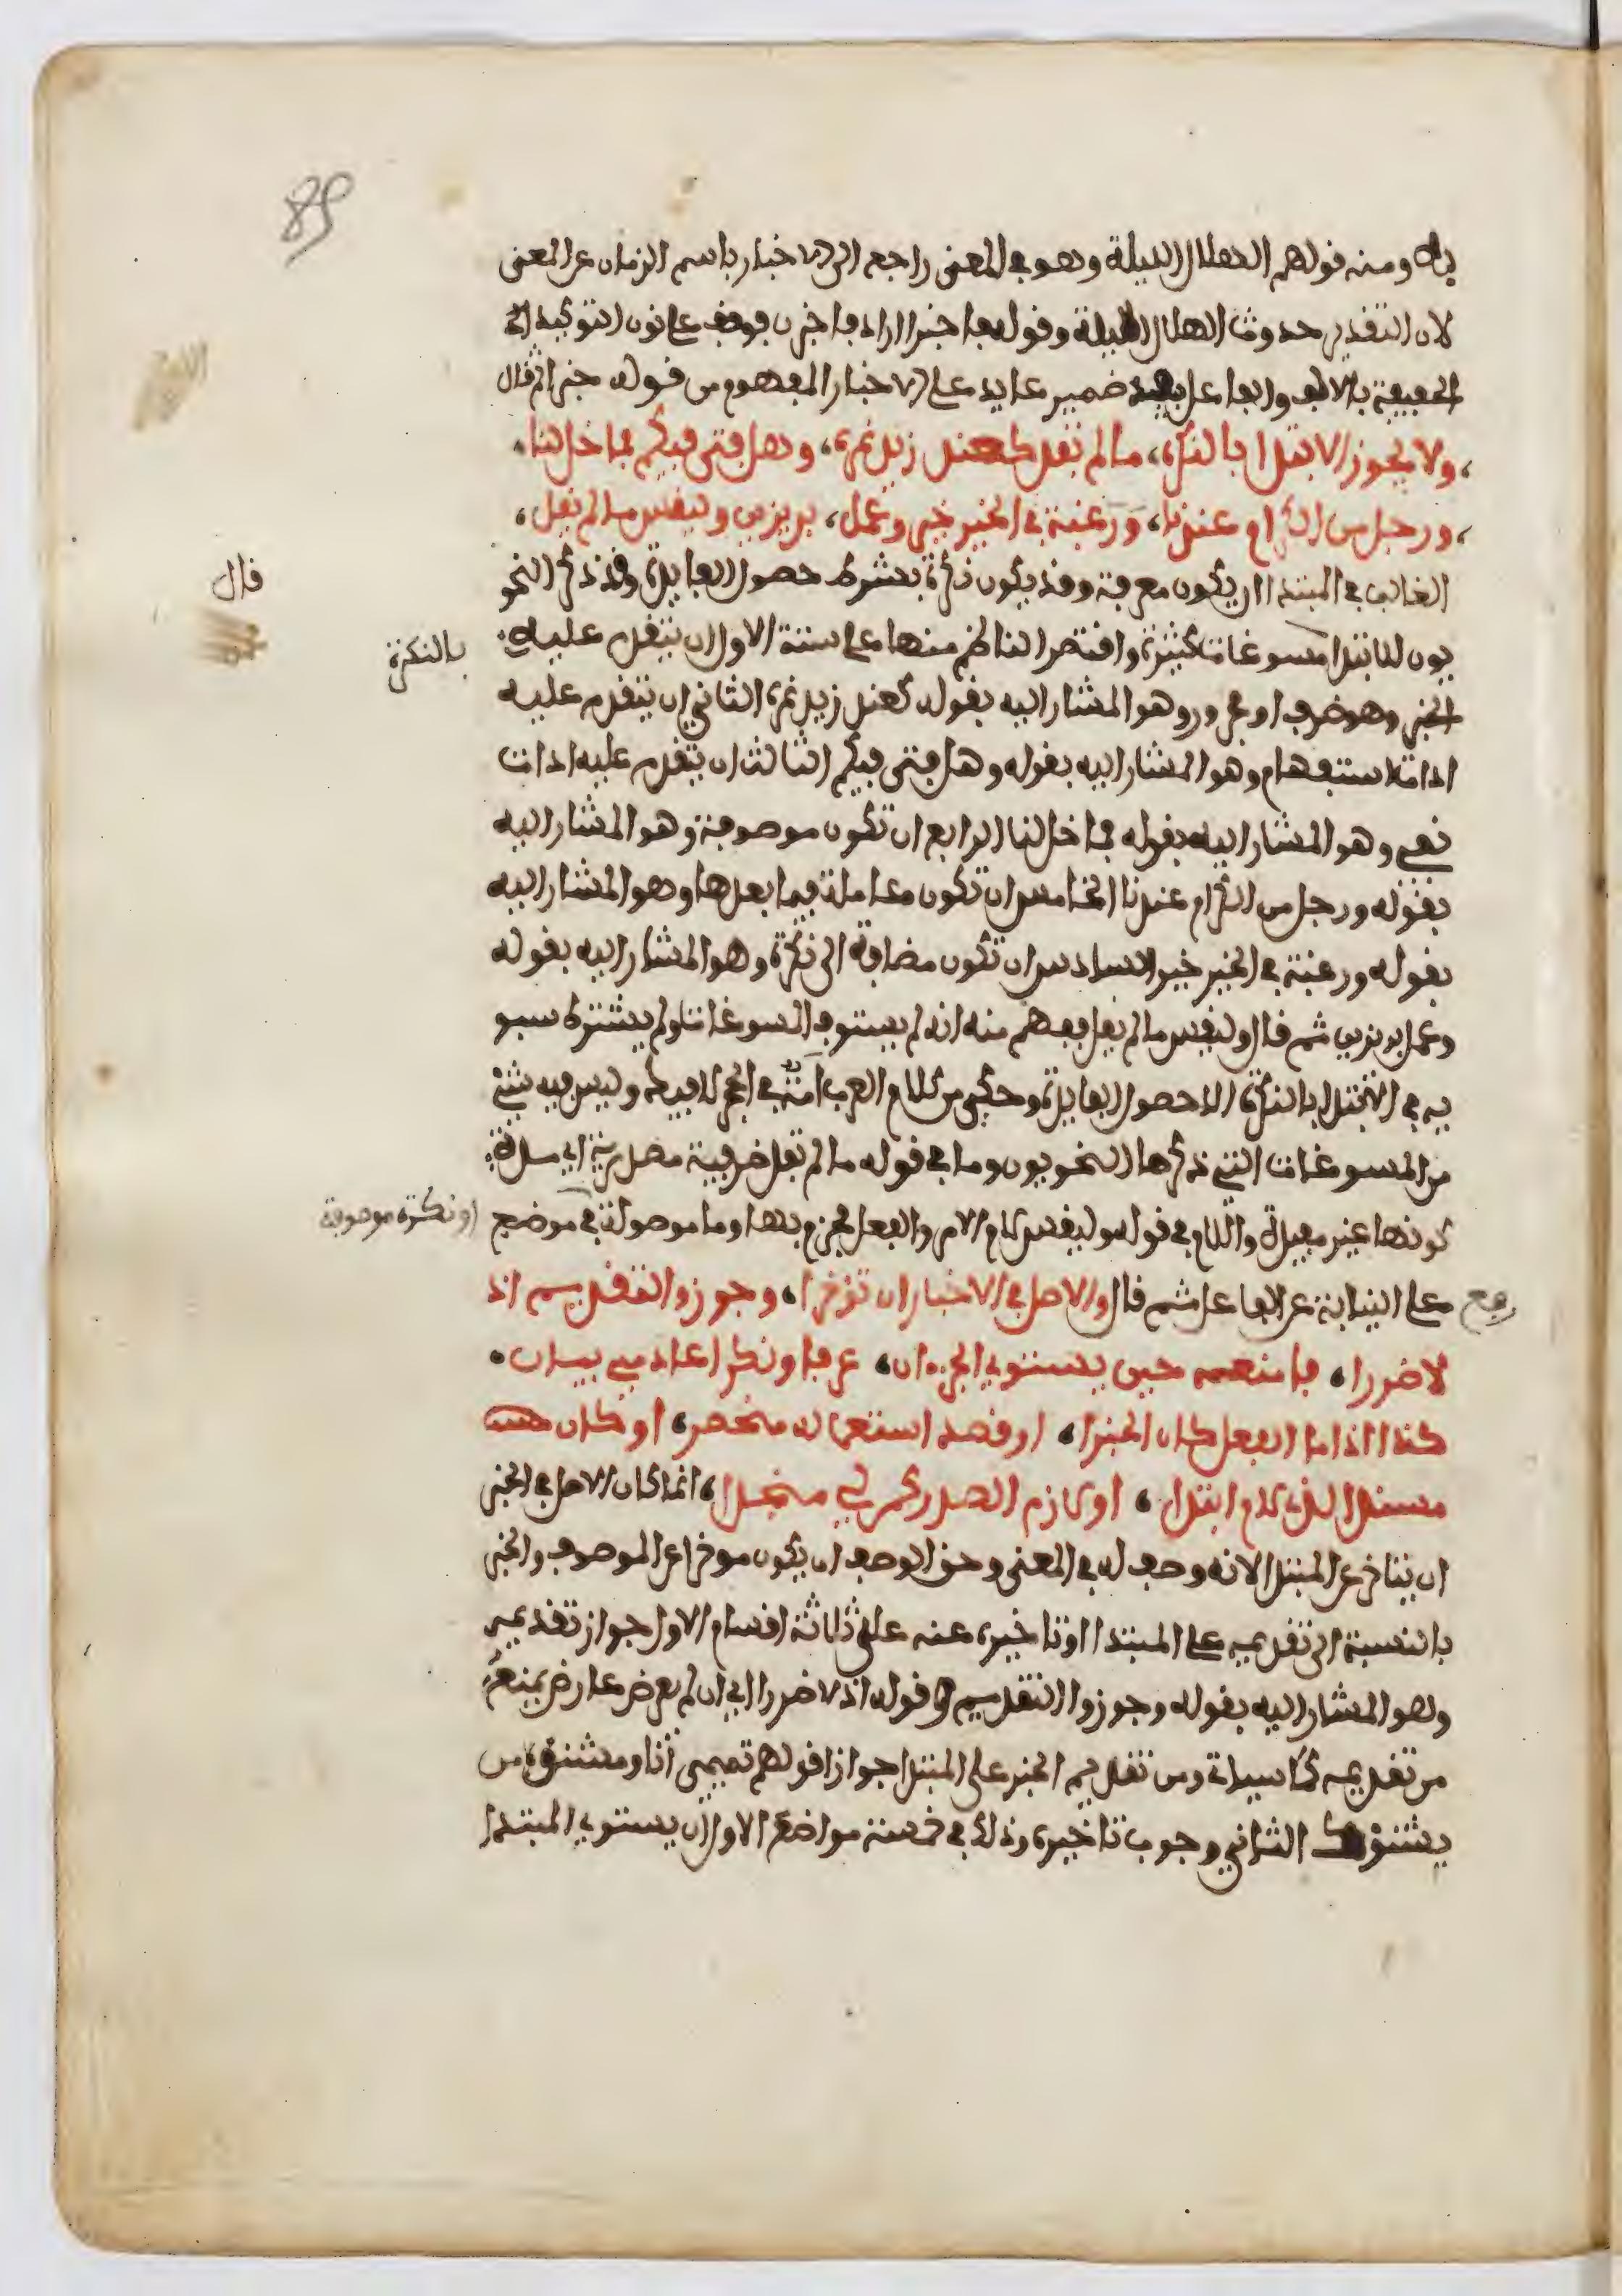 89
به ومنه قولهم الهلال الليلة وهو في المعنى راجع الى الاخبار باسم الزمان عن المعنى
لان التقدير حدوث الهلال الليلة وقوله فاخبرا اراد فاخبرن فوقف على نون التوكيد
الخفيفة بالالف وفاعل يفد ضمير عايد على الاخبار المفهوم من قوله خبرا ثم قال
ولا يجوز الابتدا بالنكره، ما لم تفد كعند زيد نمره، وهل فتى فيكم فما خل لنا،
ورجل من الكرام عندنا، ورغبة في الخير خير وعمل، بر يزين وليقس ما لم يقل،
قال
الغالب في المبتدا ان يكون معرفة وقد يكون نكرة بشرط حصول الفايدة وقد ذكر النحو
يون للابتدا مسوغات كثيرة واقتصر الناظم منها على ستة الاول ان يتقدم عليه
بالنكرة
الخبر وهو ظرف او مجرور وهو المشار اليه بقوله كعند زيد نمره الثاني ان يتقدم عليه
اداة استفهام وهو المشار اليه بقوله وهل فتى فيكم الثالث ان يتقدم عليه ادات
نفي وهو المشار اليه بقوله فما خل لنا الرابع ان تكون موصوفة وهو المشار اليه
بقوله ورجل من الكرام عندنا الخامس ان تكون عاملة فيما بعدها وهو المشار اليه
بقوله ورغبة في الخير خير السادس ان تكون مضافة الى نكرة وهو المشار اليه بقوله
وعمل بر يزين ثم قال وليقس ما لم يقل ففهم منه انه لم يستوف المسوغات ولم يشترط سيبو
يه في الابتدا بالنكرة الا حصول الفايدة وحكي من كلام العرب امت في الحجر لا فيك وليس فيه شيء
من المسوغات التي ذكرها النحويون وما في قوله ما لم تفد ظرفية مصدرية اي مدة
كونها غير مفيدة واللام في قوله وليقس لام الامر والفعل مجزوم بها وما موصولة في موضع
او نكرة موصوفة
رفع على النيابة عن الفاعل ثم قال والاصل في الاخبار ان تؤخرا، وجوزوا التقديم اذ
لا ضررا، فامنعه حين يستوي الجزءان، عرفا ونكرا عادمي بيان،
كذا اذا ما الفعل كان الخبرا، او قصد استعماله منحصرا، او كان
مسندا لذي لام ابتدا، او لازم الصدر كمن لي منجدا، انما كان الاصل في الخبر
ان يتاخر عن المبتدا لانه وصف له في المعنى وحق الوصف ان يكون موخرا عن الموصوف والخبر
بالنسبة الى تقديمه على المبتدا او تاخيره عنه على ثلاثة اقسام الاول جواز تقديمه
وهو المشار اليه بقوله وجوزوا التقديم وقوله اذ لا ضررا اي ان لم يعرض عارض يمنع
من تقديمه كما سياتي ومن تقديم الخبر على المبتدا جوازا قولهم تميمي انا ومشنوء من
يشنؤك الثاني وجوب تاخيره وذلك في خمسة مواضع الاول ان يستوي المبتدا